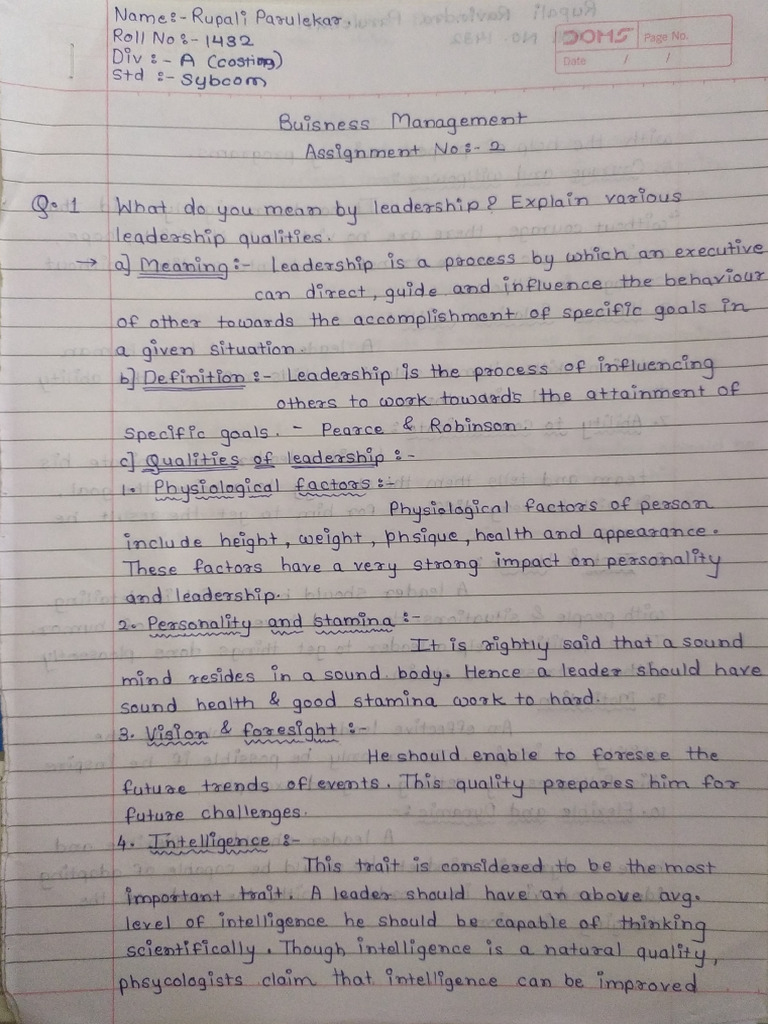 Name:- Rupali Parulekar.
Roll No:- 1432
Div:- A (costing)
Std :- Sybcom
DOMS
Page No.
Date / /
Buisness Management
Assignment No:- 2
Q.1 What do you mean by leadership? Explain various
leadership qualities.
→ a] Meaning:- Leadership is a process by which an executive
can direct, guide and influence the behaviour
of other towards the accomplishment of specific goals in
a given situation.
b] Definition:- Leadership is the process of influencing
others to work towards the attainment of
specific goals. - Pearce & Robinson.
c] Qualities of leadership:-
1. Physiological factors:-
Physiological factors of person
include height, weight, phsique, health and appearance.
These factors have a very strong impact on personality
and leadership.
2. Personality and stamina:-
It is rightly said that a sound
mind resides in a sound body. Hence a leader should have
sound health & good stamina work to hard.
3. Vision & foresight:-
He should enable to foresee the
future trends of events. This quality prepares him for
future challenges.
4. Intelligence:-
This trait is considered to be the most
important trait. A leader should have an above avg.
level of intelligence he should be capable of thinking
scientifically. Though intelligence is a natural quality,
phsycologists claim that intelligence can be improved